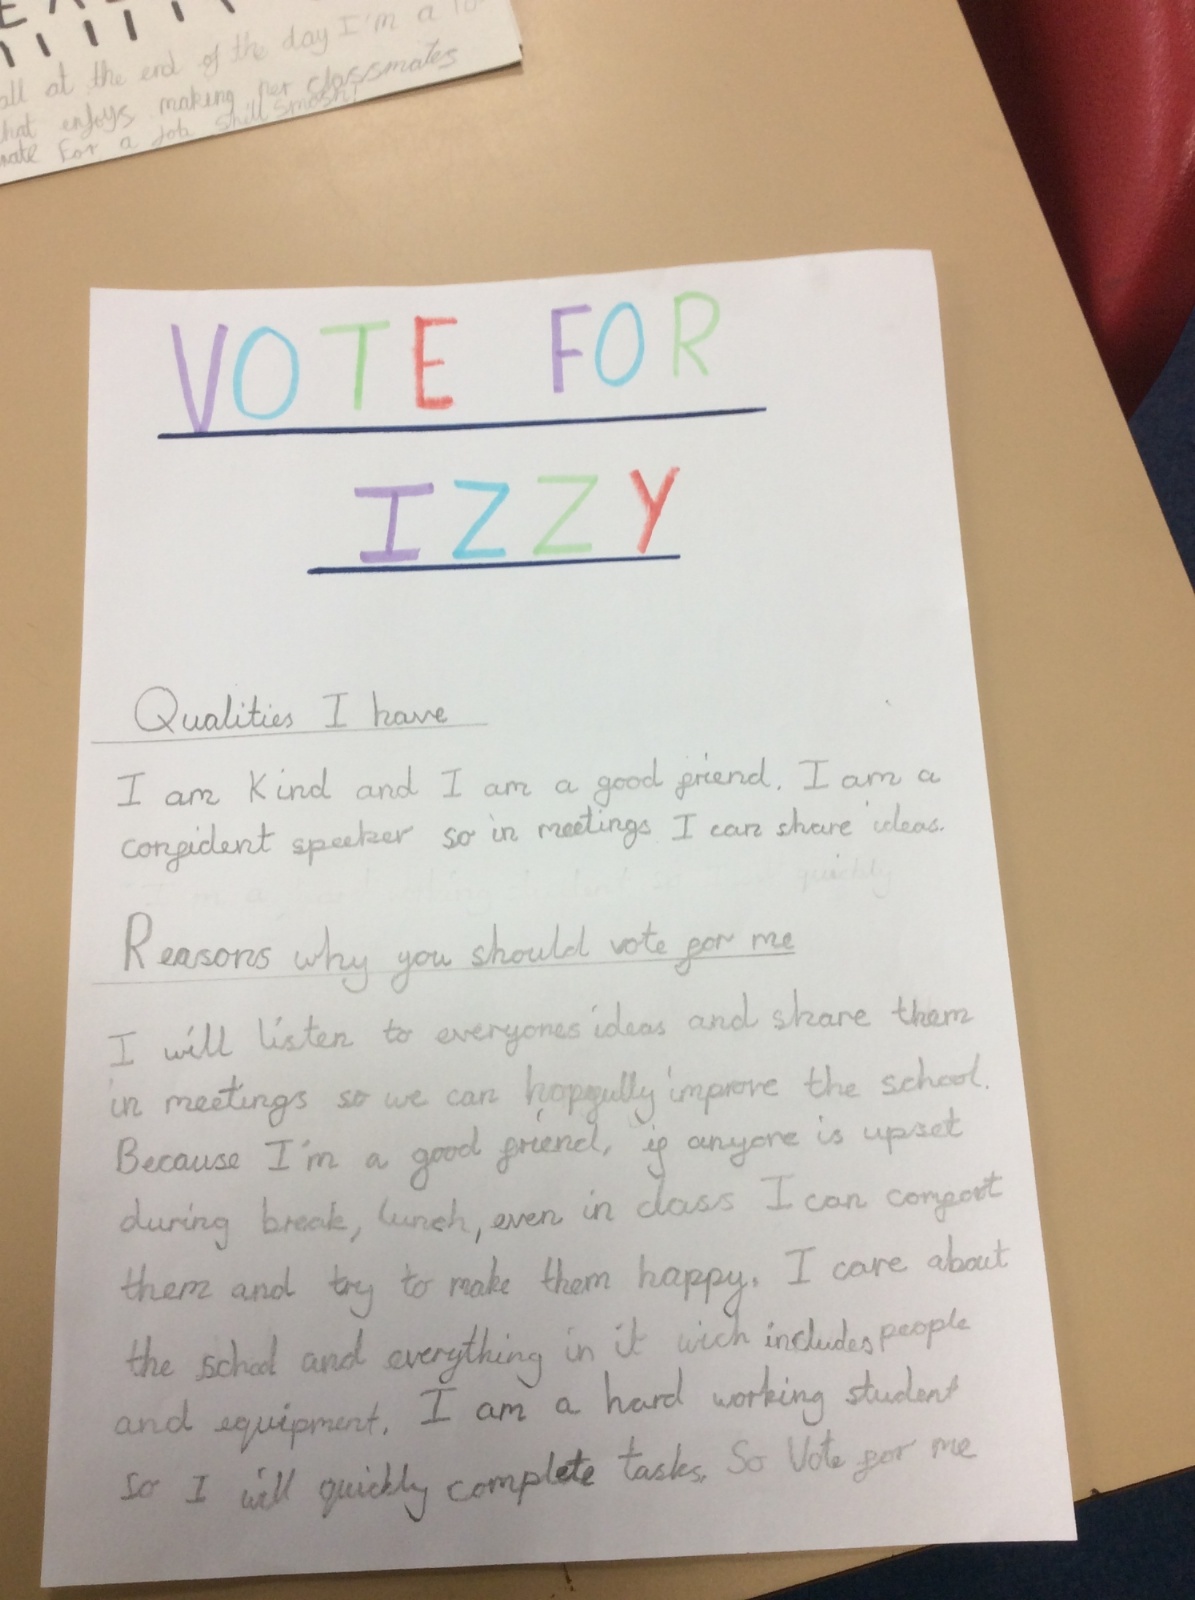 all at the end of the day I'm a
that enjoys making her classmates
for a job still smash!
VOTE FOR
IZZY
Qualities I have
I am Kind and I am a good friend. I am a
confident speeker so in meetings I can share ideas.
Reasons why you should vote for me
I will listen to everyones ideas and share them
in meetings so we can hopefully improve the school.
Because I'm a good friend, if anyone is upset
during break, lunch, even in class I can comfort
them and try to make them happy. I care about
the school and everything in it wich includes people
and equipment. I am a hard working student
so I will quickly complete tasks. So Vote for me